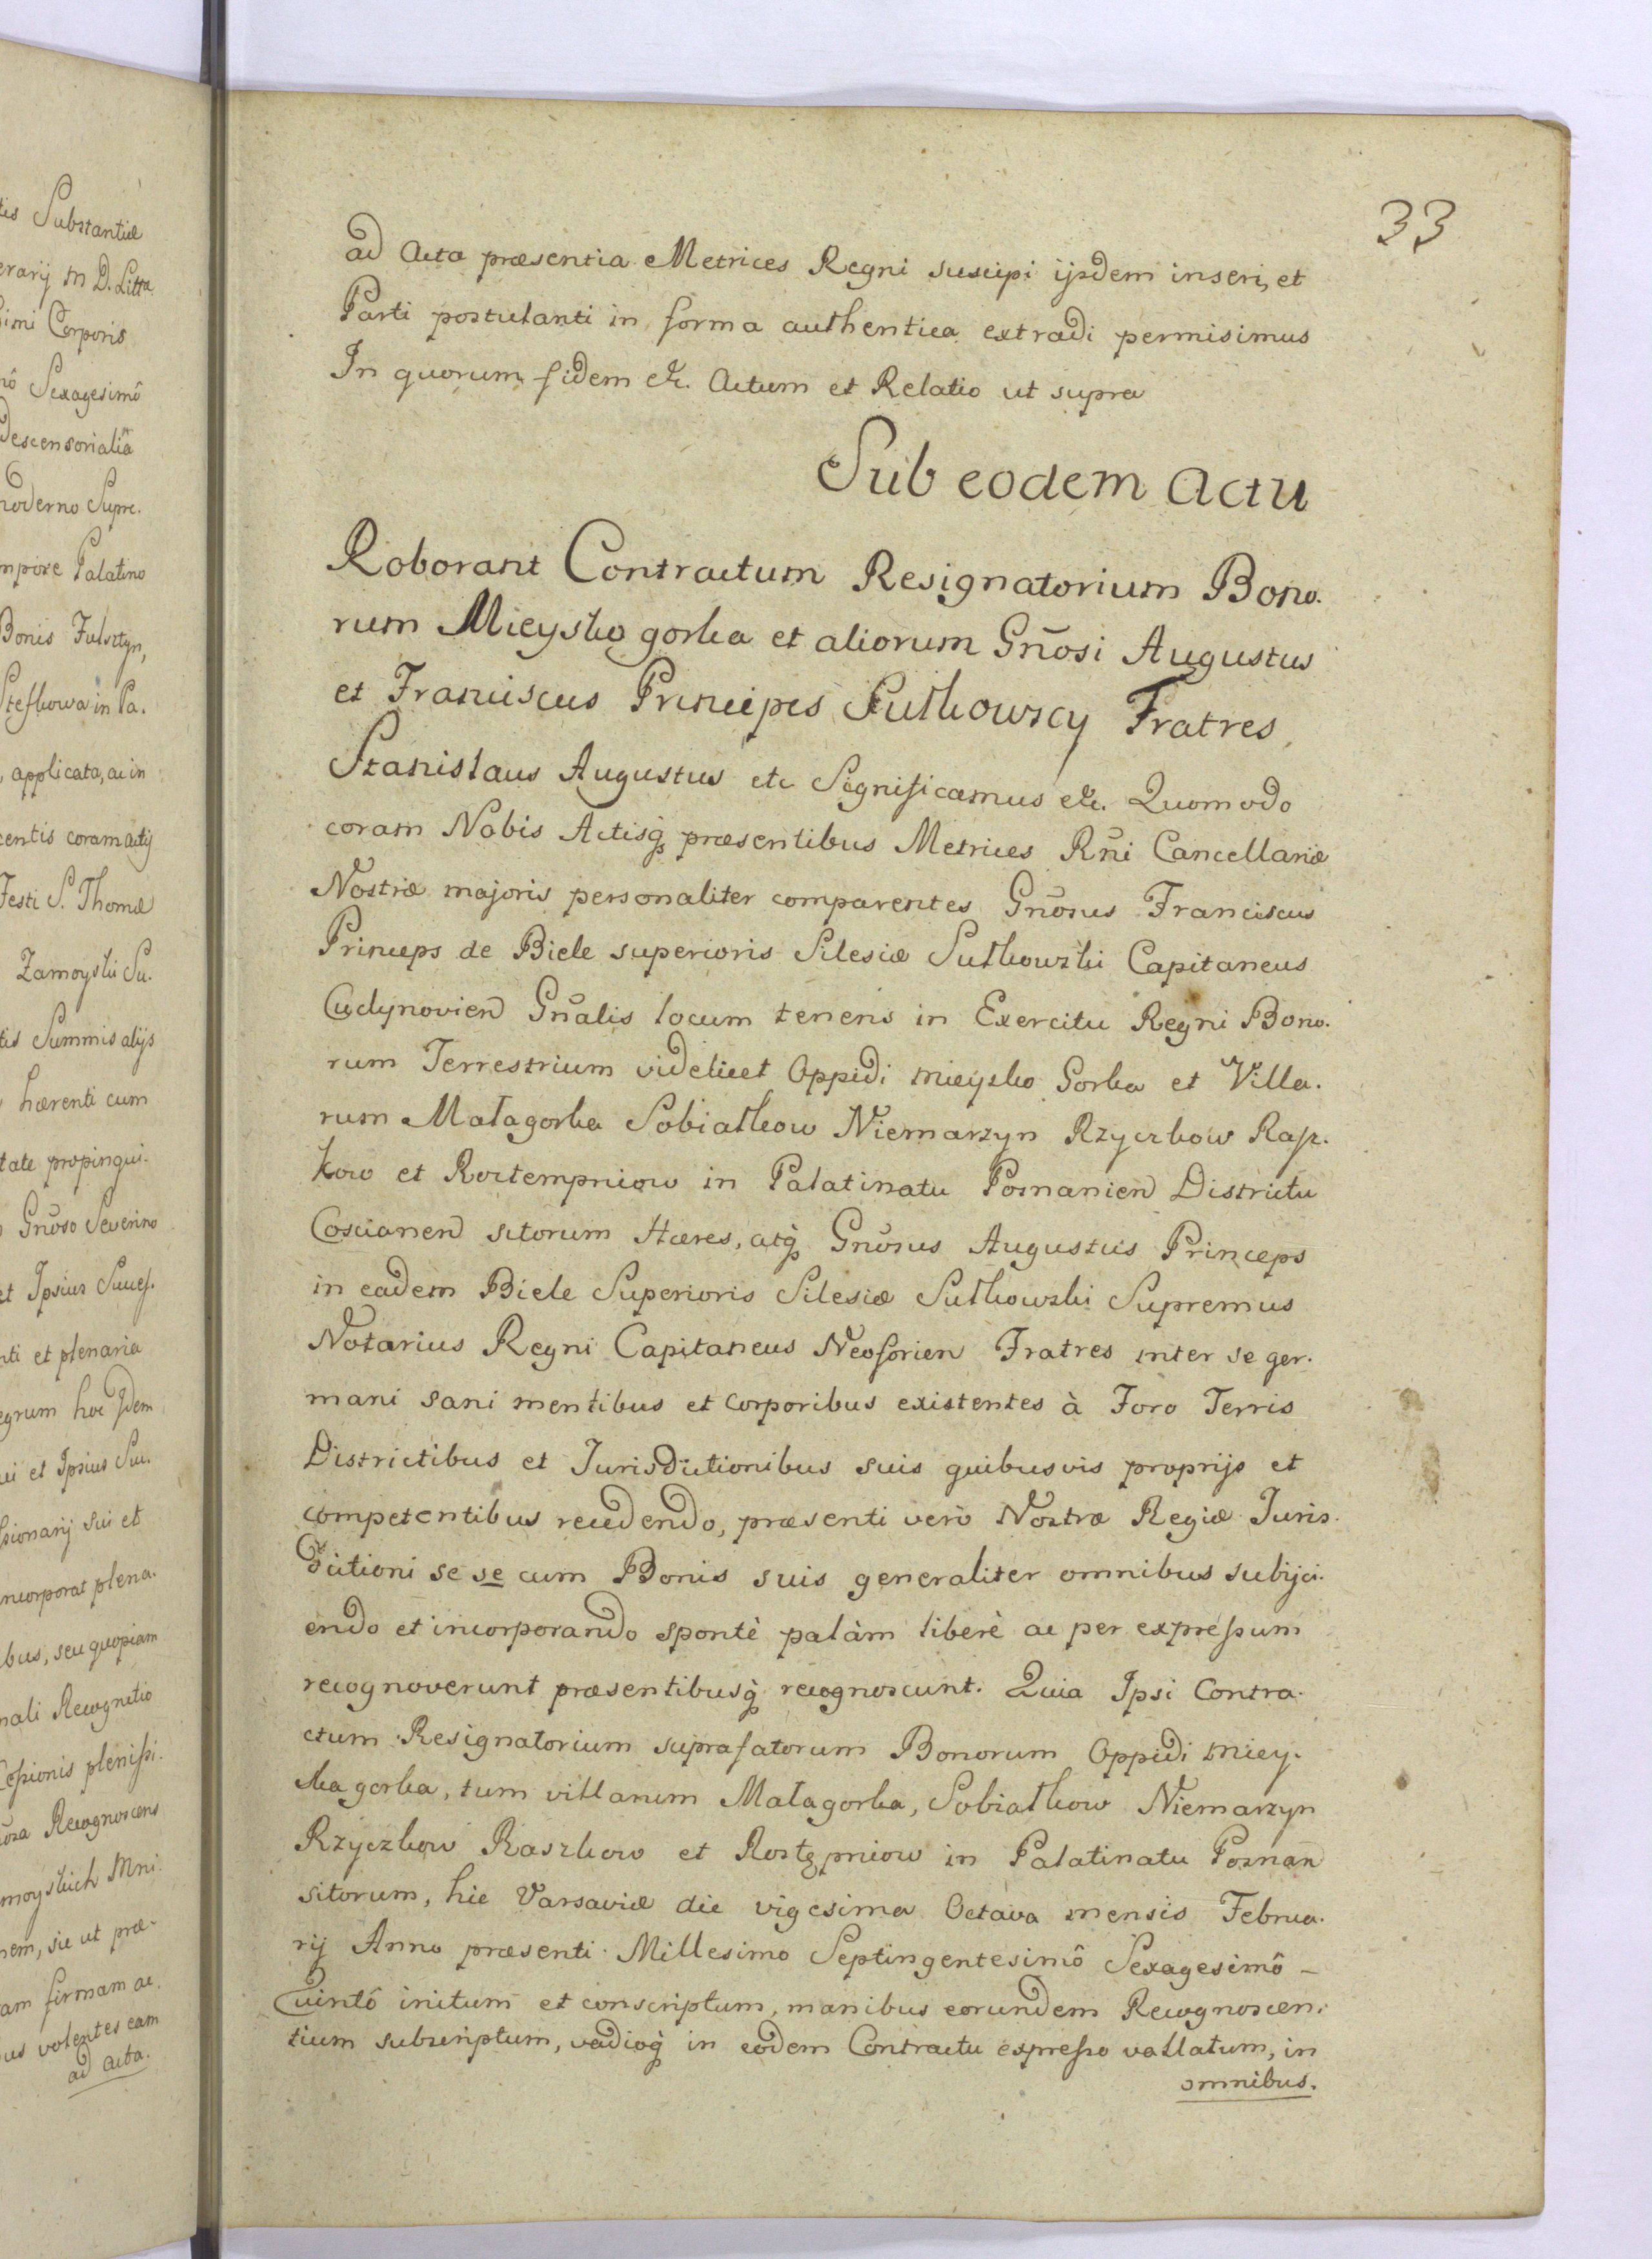 33
ad Acta præsentia Metrices Regni suscipi ijsdem inseri, et
Parti postulanti in forma authentica extradi permisimus
In quorum fidem etc. Actum et Relatio ut supra
Sub eodem Actu
Roborant Contractum Resignatorium Bono-
rum Mieysko gorka et aliorum Gn̄osi Augustus
et Franciscus Principes Sułkowscy Fratres
Stanislaus Augustus etc Significamus etc. Quomodo
coram Nobis Actisq̨ præsentibus Metrices Rn̄i Cancellariæ
Nostræ majoris personaliter comparentes Gn̄osus Franciscus
Princeps de Biele superioris Silesiæ Sułkowski Capitaneus
Gn̄alis locum tenens in Exercitu Regni Bono-
rum Terrestrium videlicet Oppidi Mieysko Gorka et Villa-
rum Małagorka Sobiałkow Niemarzyn Rzyczkow Rasz-
kow et Roztempniow in Palatinatu Posnanien Districtu
Coscianen sitorum Hæres, atq̨ Gn̄osus Augustus Princeps
in eadem Biele Superioris Silesiæ Sułkowski Supremus
Notarius Regni Capitaneus Neoforien Fratres inter se ger-
mani sani mentibus et corporibus existentes à Foro Terris
Districtibus et Jurisdictionibus suis quibusvis proprijs et
competentibus recedendo, præsenti verò Nostræ Regiæ Juris-
dictioni se se cum Bonis suis generaliter omnibus subijci-
endo et incorporando spontè palàm liberè ac per expressum
recognoverunt præsentibusq̨ recognoscunt. Quia Ipsi Contra-
ctum Resignatorium suprafatorum Bonorum Oppidi Miey-
ska gorka, tum villarum Małagorka, Sobiałkow Niemarzyn
Rzyczkow Raszkow et Rostępniow in Palatinatu Posnan
sitorum, hic Varsaviæ die vigesima Octava mensis Februa-
rij Anno præsenti Millesimo Septingentesimô Sexagesimô –
Quintô initum et conscriptum, manibus eorundem Recognoscen-
tium subscriptum, vadioq̨ in eodem Contractu expresso vallatum, in
omnibus.
tis Substantiæ
erarij M D. Litta
simi Corporis
nô Sexagesimô
descensorialiā
moderno Supre-
mpore Palatino
Bonis Fulsztyn,
Steskowa in Pa-
, applicata, ac in
centis coram actij
Festi S. Thomæ
Zamoyski Su-
tis Summis alijs
hærenti cum
tate propinqui-
Gn̄oso Severino
et Ipsius Succes-
nti et plenaria
egrum hoc Idem
ui et Ipsius Suc-
ssionarij sui et
incorporat plena-
bus, seu quopiam
nali Recognitio
Cessionis plenissi-
n̄osa Recognoscens
moyskich Mni-
nem, sic ut præ-
am firmam ac-
us volentes eam
ad acta.